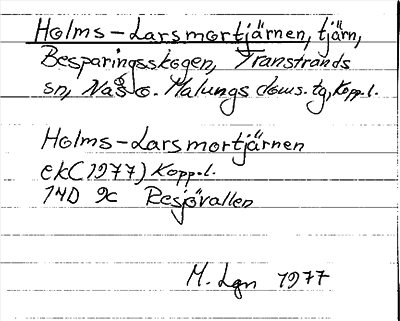 Holms-Larsmortjärnen, tjärn,
Besparingsskogen, Transtrands
sn, Nås o. Malungs doms. tg, Koppl.
Holms-Larsmortjärnen
ek (1977) Koppl.
14D 9c Resjövallen
M. Lgn 1977